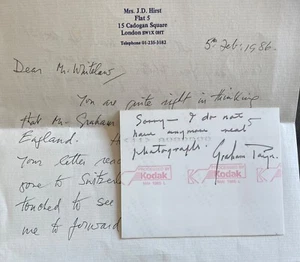 Mrs. J.D. Hirst
Flat 5
15 Cadogan Square
London SW1X 0HT
Telephone 01-235-3582
5th Feb. 1986.
Dear Mr. Whitelaw,
You are quite right in thinking
that Mr. Graham
England.
Your letter
gone to Switzerla
touched to see
me to forward
Sorry — I do not
have anymore
photographs.
Graham Payn.
Kodak